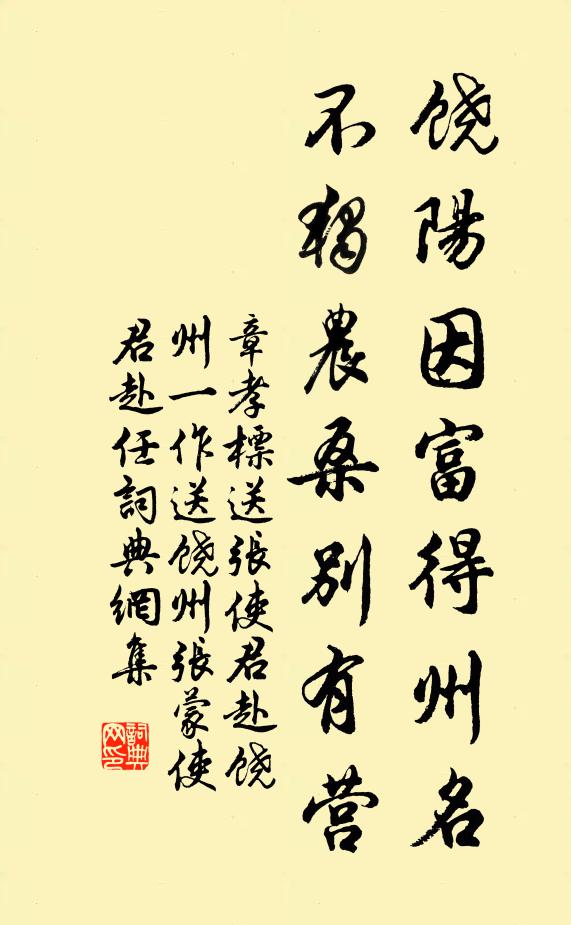 饶陽因富得州名
不獨農桑别有营
章孝標送張使君赴饶
州一作送饶州張蒙使
君赴任詞典網集
詞典网印